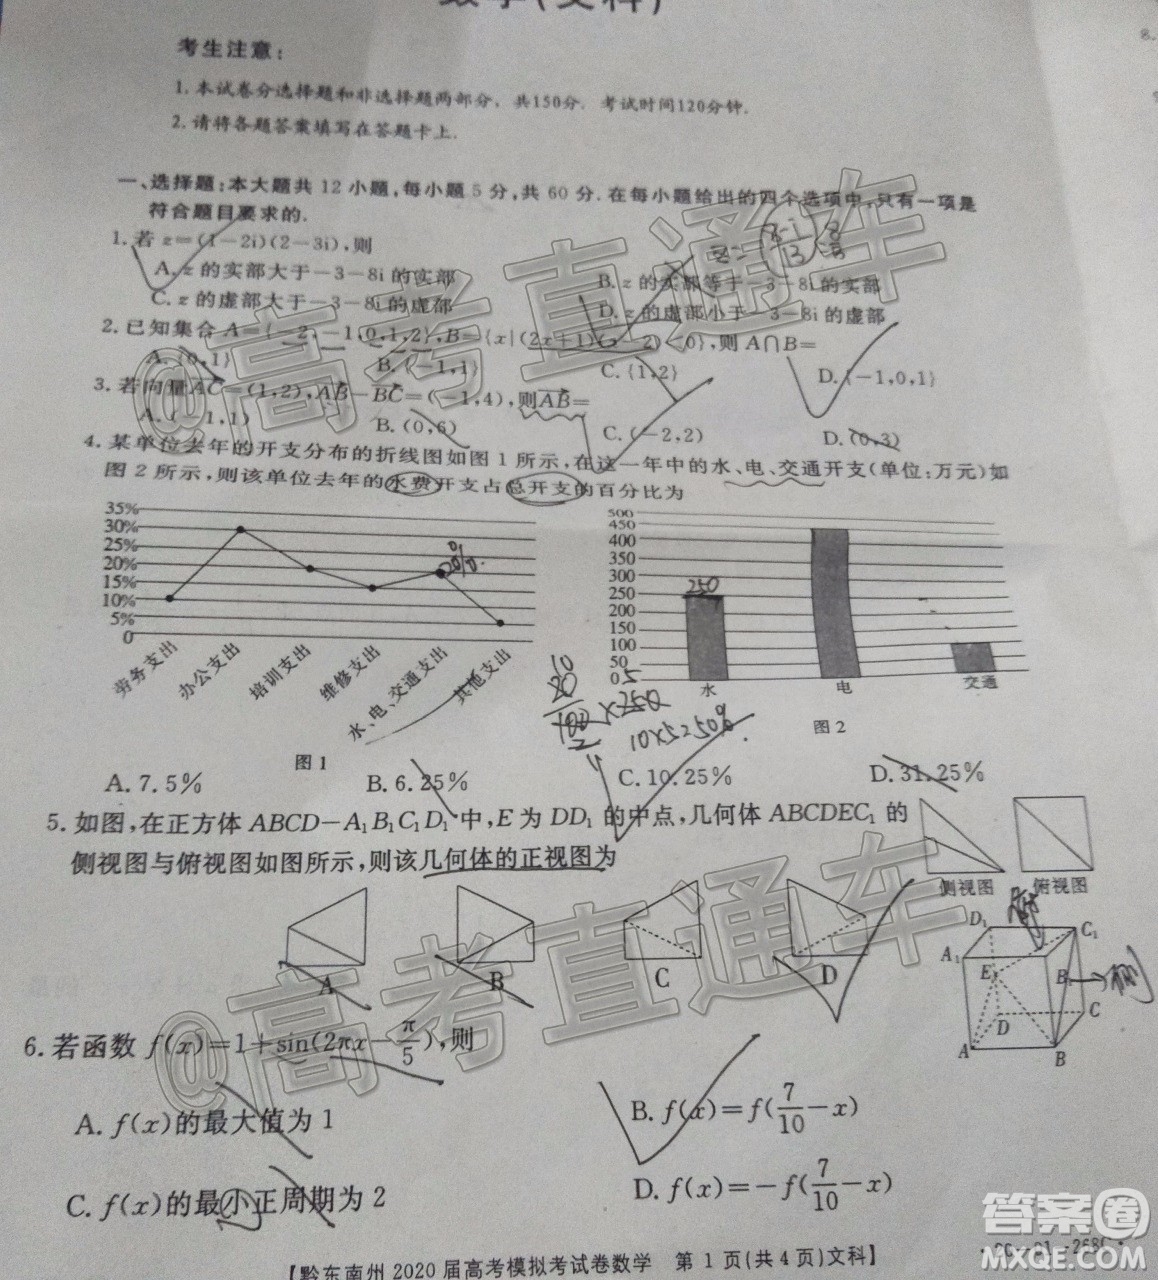 数学(文科)
考生注意:
1. 本试卷分选择题和非选择题两部分. 共150分. 考试时间120分钟.
2. 请将各题答案填写在答题卡上.
一、选择题:本大题共 12 小题,每小题 5 分,共 60 分.在每小题给出的四个选项中,只有一项是
符合题目要求的.
1.若 z=(1-2i)(2-3i),则
A. z 的实部大于-3-8i 的实部
B. z 的实部等于-3-8i 的实部
C. z 的虚部大于-3-8i 的虚部
D. z 的虚部小于-3-8i 的虚部
2.已知集合 A={-2,-1,0,1,2},B={x|(2x+1)(x-2)<0},则 A∩B=
A.{0,1}
B.{-1,1}
C.{1,2}
D.{-1,0,1}
3.若向量AC=(1,2),AB-BC=(-1,4),则AB=
A.(-1,1)
B.(0,6)
C.(-2,2)
D.(0,3)
4.某单位去年的开支分布的折线图如图 1 所示,在这一年中的水、电、交通开支(单位:万元)如
图 2 所示,则该单位去年的水费开支占总开支的百分比为
35%
30%
25%
20%
15%
10%
5%
0
劳务支出
办公支出
培训支出
维修支出
水、电、交通支出
其他支出
20%
图 1
500
450
400
350
300
250
200
150
100
50
0
250
水
电
交通
图 2
A. 7.5%
B. 6.25%
C. 10.25%
D. 31.25%
5. 如图,在正方体 ABCD-A₁B₁C₁D₁ 中,E 为 DD₁ 的中点,几何体 ABCDEC₁ 的
侧视图与俯视图如图所示,则该几何体的正视图为
侧视图
俯视图
A
B
C
D
D₁
C₁
A₁
B₁
E
D
C
A
B
侧
6. 若函数 f(x)=1+sin(2πx-π/5),则
A. f(x)的最大值为 1
B. f(x)=f(7/10-x)
C. f(x)的最小正周期为 2
D. f(x)=-f(7/10-x)
【黔东南州 2020 届高考模拟考试卷数学 第 1 页(共 4 页)文科】
@高考直通车
@高考直通车
答案圈
MXQE.COM
8.